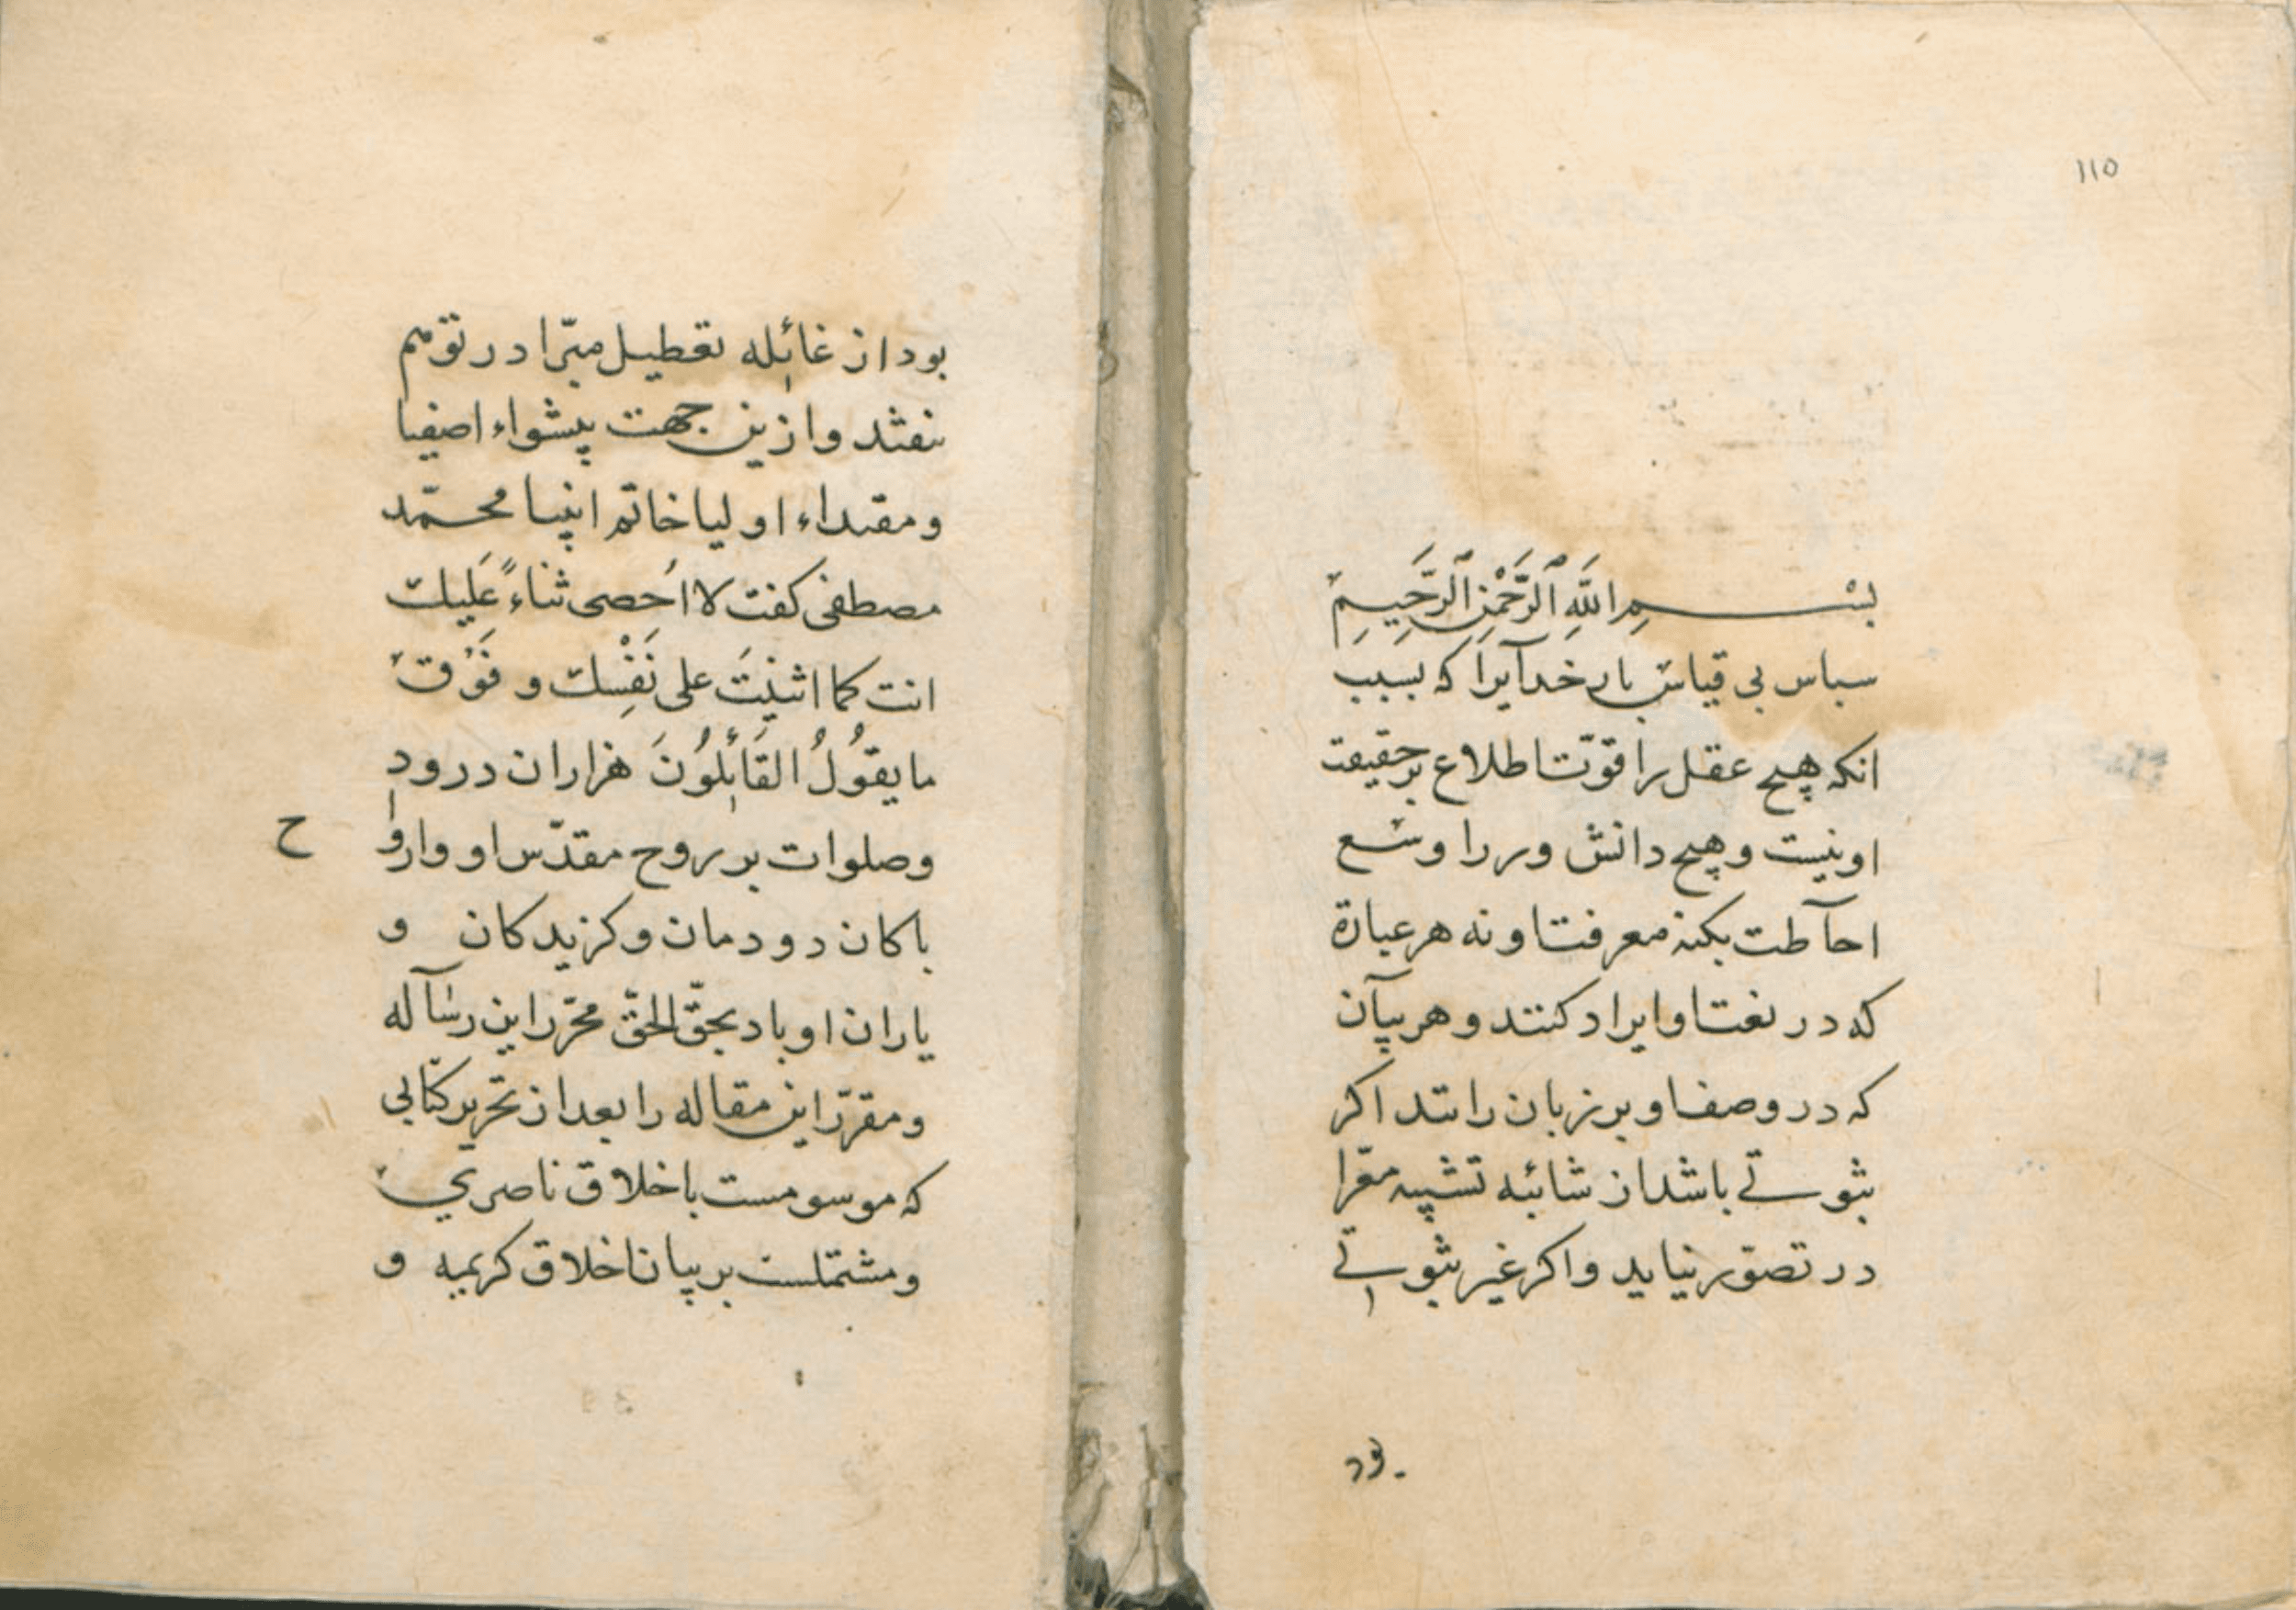 ١١٥
بسم الله الرحمن الرحیم
سباس بی قیاس بار خدآیرا که بسبب
انکه هیچ عقل را قوّت اطلاع بر حقیقت
او نیست و هیچ دانش ور را وسع
احآطت بکنه معرفت او نه هر عبارة
که در نعت او ایراد کنند و هر بیآن
که در وصف او بر زبان رانند اکر
ثبوتے باشد از شائبه تشبیه معّرا
در تصوّر نیاید و اکر غیر ثبوتے
بود
بود از غائله تعطیل مبّرا در توهّم
نفتد و ازین جهت پیشواء اصفیا
و مقتداء اولیا خاتم انبیا محمّد
مصطفی کفت لا اُحصی ثناءً عَلیك
انت کما اثنیتَ علی نَفْسِك و فَوْقَ
ما یقوُلُ القَائلوُنَ هزاران درود
و صلوات بر روح مقدّس او و اروا ح
باکان دودمان و کزیدکان و
یاران او باد بحقّ الحقّ محرّر این رسآله
و مقرّر این مقاله را بعد از تحریر کتابی
که موسومست باخلاق ناصري
و مشتملست بر بیان اخلاق کریمه و